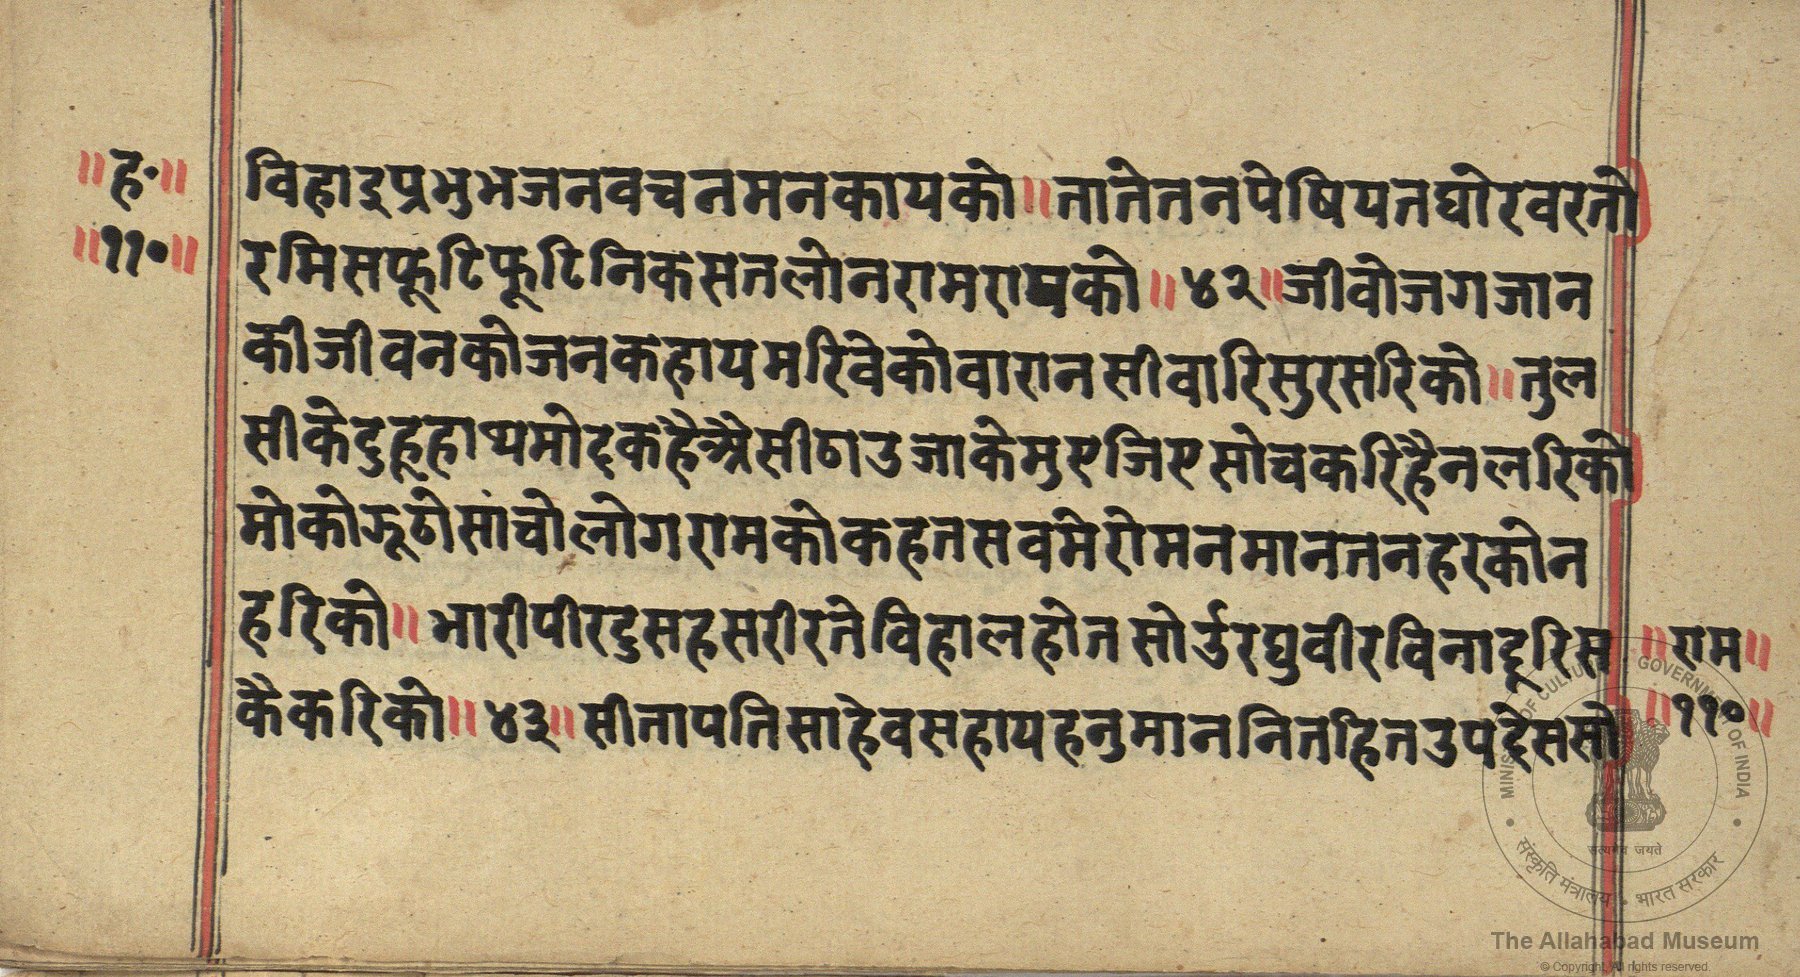 ॥ह॰॥
॥११०॥
विहाइप्रभुभजनवचनमनकायको॥तातेतनपेषियतघोरवरतो
रमिसफूटिफूटिनिकसतलोनरामरायको॥४२॥जीवोजगजान
कीजीवनकोजनकहायमरिवेकोवारानसीवारिसुरसरिको॥तुल
सीकेदुहूहाथमोदकहैअैसीठाउजाकेमुएजिएसोचकरिहैनलरिको
मोकोझूठोसांचोलोगरामकोकहतसवमेरोमनमानतनहरकोन
हरिको॥भारीपीरदुसहसरीरतेविहालहोतसोउरघुवीरविनादूरिस
कैकरिको॥४३॥सीतापतिसाहेवसहायहनुमाननितहितउपदेससो
॥राम॥
॥११०॥
MINISTRY OF CULTURE • GOVERNMENT OF INDIA
सत्यमेव जयते
संस्कृति मंत्रालय • भारत सरकार
The Allahabad Museum
© Copyright, All rights reserved.